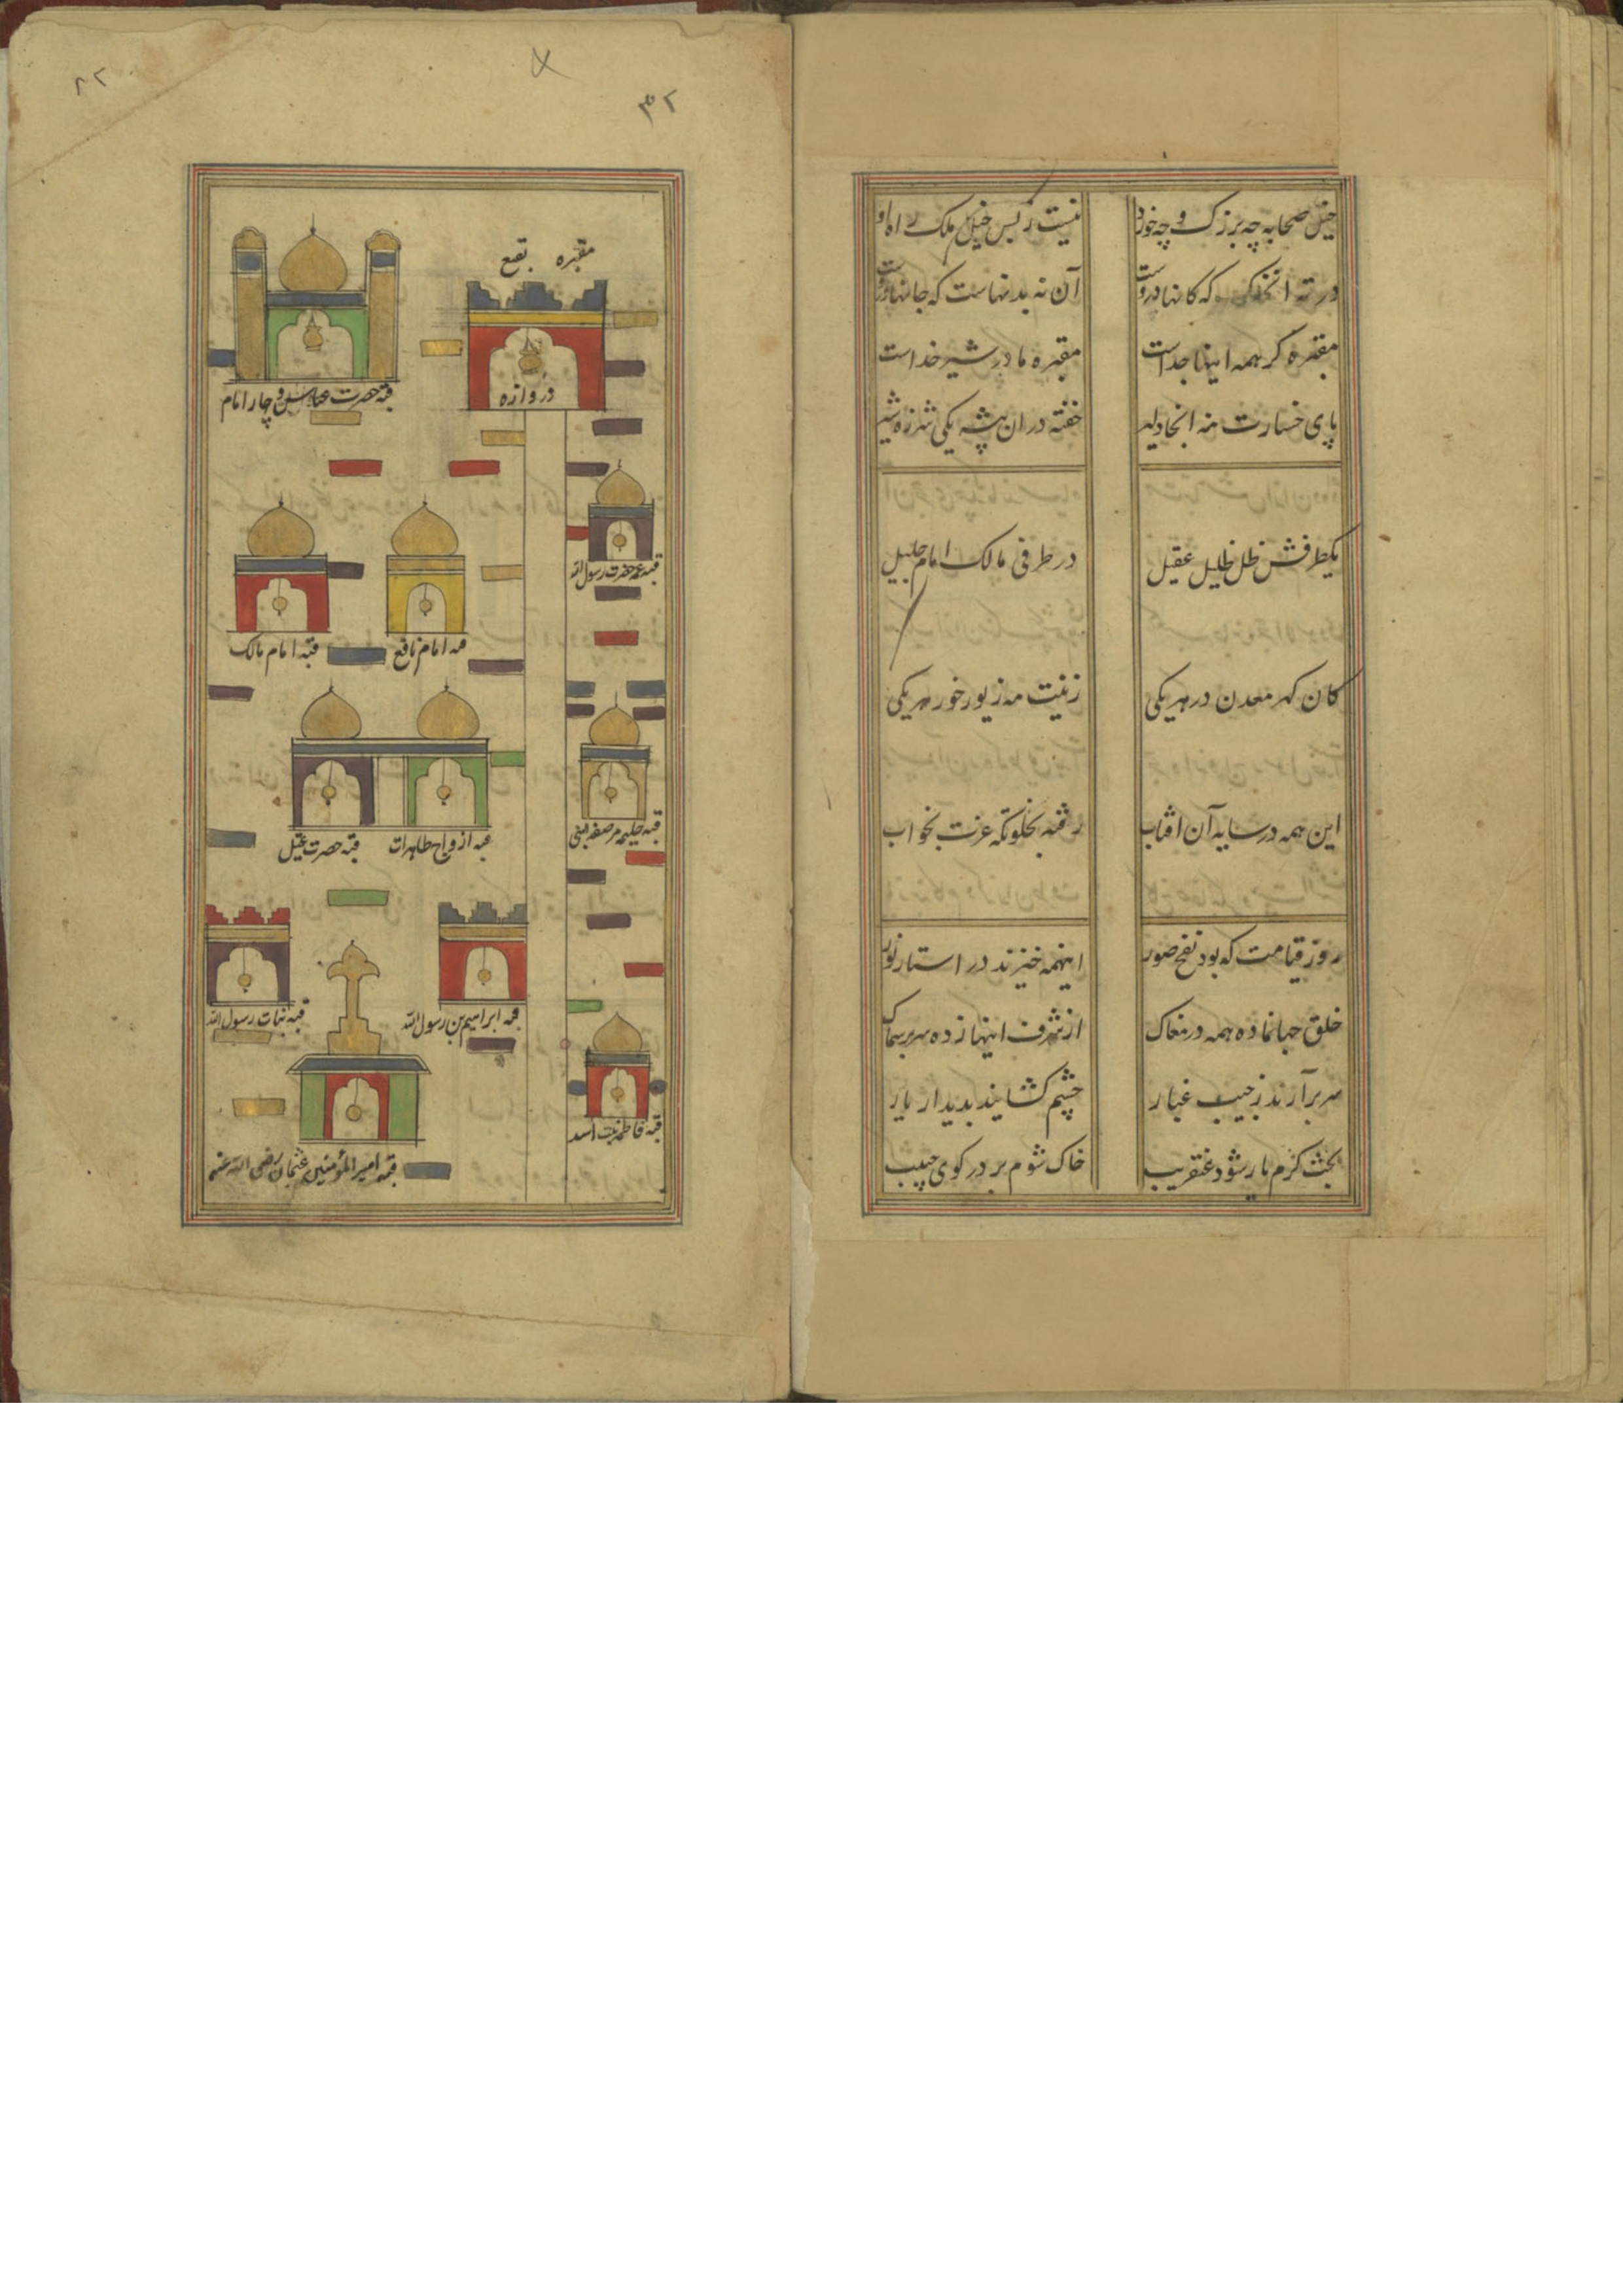 خیل صحابه چه بزرگ و چه خورد
نیست ز بس خیل ملک راه او
در ته آن خاک که کانها دروست
آن نه بدنهاست که جانها دروست
مقبره گر همه اینها جداست
مقبره مادر شیر خداست
پای خسارت منه آنجا دلیر
خفته در ان بیشه یکی شرزه شیر
یکطرفش ظل ظلیل عقیل
در طرفی مالک امام جلیل
کان گهر معدن در هر یکی
زینت مه زیور خور هر یکی
این همه در سایه آن افتاب
رفته بخلوتکه عزت بخواب
روز قیامت که بود نفخ صور
اینهمه خیزند در استار نور
خلق جهانماده همه در مغاک
از شرف اینها زده سر بر سماک
سر برآرند ز جیب غبار
چشم کشایند بدیدار یار
بخت کرم یار شود عنقریب
خاک شوم بر در کوی حبیب
۸۲
۳۲
مقبره بقیع
دروازه
قبه حضرت عباس و چار امام
قبه عمه حضرت رسول الله
قبه امام نافع
قبه امام مالک
قبه حلیمه مرضعه النبی
قبه ازواج طاهرات
قبه حضرت عقیل
قبه ابراهیم بن رسول الله
قبه بنات رسول الله
قبه فاطمه بنت اسد
قبه امیر المؤمنین عثمان رضی الله عنه